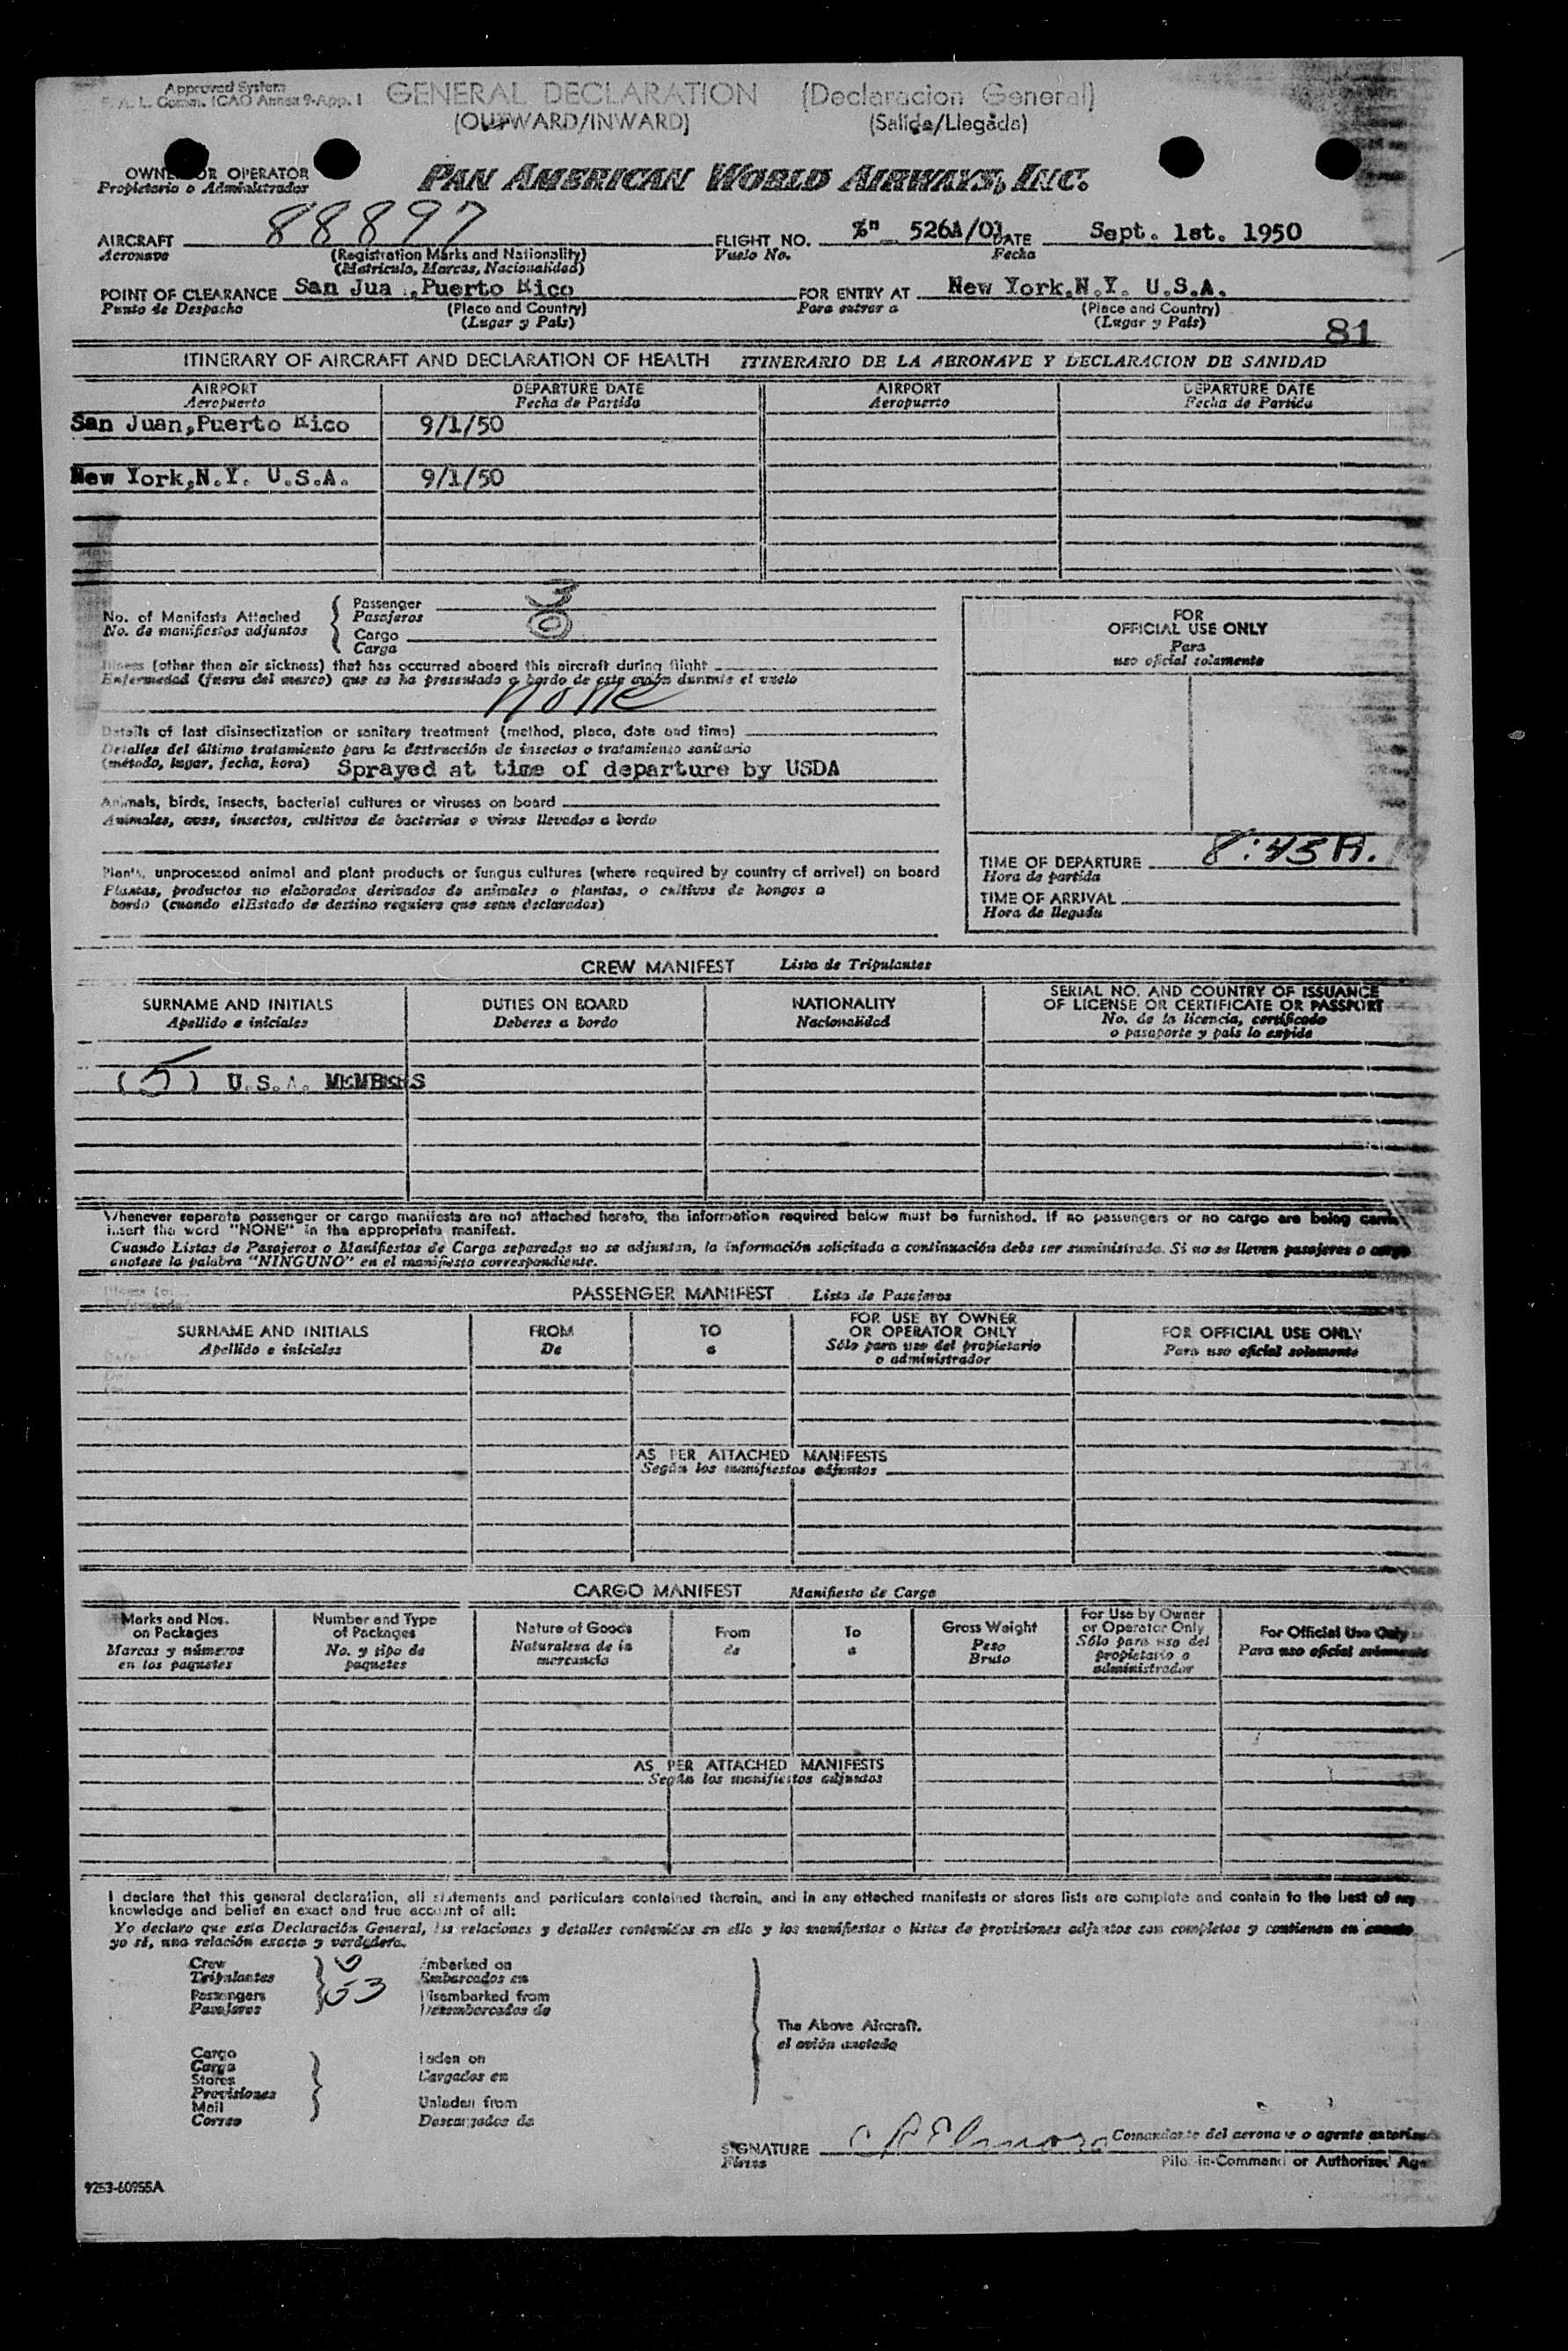 Approved System
F. A. L. Comm. ICAO Annex 9-App. I
GENERAL DECLARATION (Declaracion General)
(OUTWARD/INWARD) (Salida/Llegada)
OWNER OR OPERATOR
Propietario o Administrador
PAN AMERICAN WORLD AIRWAYS, INC.
AIRCRAFT 88897 FLIGHT NO. 526A/01 DATE Sept. 1st. 1950
Aeronave (Registration Marks and Nationality) Vuelo No. Fecha
(Matricula, Marcas, Nacionalidad)
POINT OF CLEARANCE San Jua ,Puerto Rico FOR ENTRY AT New York,N.Y. U.S.A.
Punto de Despacho (Place and Country) Para entrar a (Place and Country)
(Lugar y País) (Lugar y País)
81
ITINERARY OF AIRCRAFT AND DECLARATION OF HEALTH ITINERARIO DE LA AERONAVE Y DECLARACION DE SANIDAD
AIRPORT DEPARTURE DATE AIRPORT DEPARTURE DATE
Aeropuerto Fecha de Partida Aeropuerto Fecha de Partida
San Juan,Puerto Rico 9/1/50
New York,N.Y. U.S.A. 9/1/50
No. of Manifests Attached
No. de manifiestos adjuntos
Passenger
Pasajeros
Cargo
Carga
FOR
OFFICIAL USE ONLY
Para
uso oficial solamente
Illness (other than air sickness) that has occurred aboard this aircraft during flight
Enfermedad (fuera del mareo) que se ha presentado a bordo de este avión durante el vuelo
none
Details of last disinsectization or sanitary treatment (method, place, date and time)
Detalles del último tratamiento para la destrucción de insectos o tratamiento sanitario
(método, lugar, fecha, hora) Sprayed at time of departure by USDA
Animals, birds, insects, bacterial cultures or viruses on board
Animales, aves, insectos, cultivos de bacterias o virus llevados a bordo
Plants, unprocessed animal and plant products or fungus cultures (where required by country of arrival) on board
Plantas, productos no elaborados derivados de animales o plantas, o cultivos de hongos a
bordo (cuando el Estado de destino requiere que sean declarados)
TIME OF DEPARTURE 8:45 A.
Hora de partida
TIME OF ARRIVAL
Hora de llegada
CREW MANIFEST Lista de Tripulantes
SURNAME AND INITIALS DUTIES ON BOARD NATIONALITY SERIAL NO. AND COUNTRY OF ISSUANCE
OF LICENSE OR CERTIFICATE OR PASSPORT
Apellido e iniciales Deberes a bordo Nacionalidad No. de la licencia, certificado
o pasaporte y país lo expide
(5) U.S.A. MEMBERS
Whenever separate passenger or cargo manifests are not attached hereto, the information required below must be furnished. If no passengers or no cargo are being
insert the word "NONE" in the appropriate manifest.
Cuando Listas de Pasajeros o Manifiestos de Carga separados no se adjuntan, la información solicitada a continuación debe ser suministrada. Si no se lleven pasajeros o carga
anotese la palabra "NINGUNO" en el manifiesto correspondiente.
PASSENGER MANIFEST Lista de Pasajeros
SURNAME AND INITIALS FROM TO FOR USE BY OWNER
OR OPERATOR ONLY FOR OFFICIAL USE ONLY
Apellido e iniciales De a Sólo para uso del propietario
o administrador Para uso oficial solamente
AS PER ATTACHED MANIFESTS
Según los manifiestos adjuntos
CARGO MANIFEST Manifiesto de Carga
Marks and Nos.
on Packages
Marcas y números
en los paquetes
Number and Type
of Packages
No. y tipo de
paquetes
Nature of Goods
Naturaleza de la
mercancía
From
de
To
a
Gross Weight
Peso
Bruto
For Use by Owner
or Operator Only
Sólo para uso del
propietario o
administrador
For Official Use Only
Para uso oficial solamente
AS PER ATTACHED MANIFESTS
Según los manifiestos adjuntos
I declare that this general declaration, all statements and particulars contained therein, and in any attached manifests or stores lists are complete and contain to the best of my
knowledge and belief an exact and true account of all:
Yo declaro que esta Declaración General, las relaciones y detalles contenidos en ella y los manifiestos o listas de provisiones adjuntos son completos y contienen en cuanto
yo sé, una relación exacta y verdadera.
Crew
Tripulantes
Passengers
Pasajeros
53
Embarked on
Embarcados en
Disembarked from
Desembarcados de
The Above Aircraft.
el avión anotado
Cargo
Carga
Stores
Provisiones
Mail
Correo
Laden on
Cargados en
Unladen from
Descargados de
SIGNATURE
Firma
Comandante del aeronave o agente
Pilot-in-Command or Authorized
9253-60955A